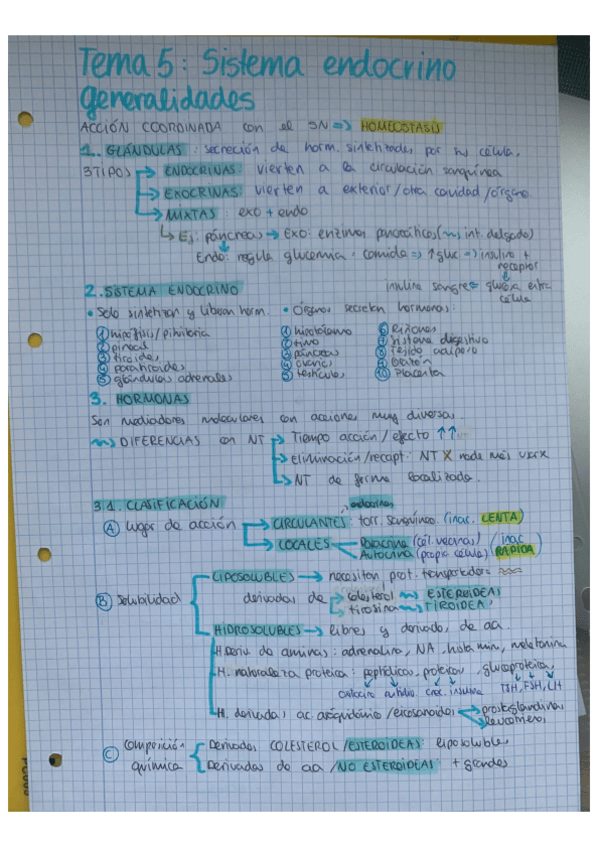 Tema 5: Sistema endocrino
generalidades
ACCIÓN COORDINADA con el SN => HOMEOSTASIS
1. GLÁNDULAS: secreción de horm. sintetizadas por sus célula.
3 TIPOS → ENDOCRINAS: vierten a la circulación sanguínea
→ EXOCRINAS: vierten a exterior/otra cavidad/órgano
→ MIXTAS: exo + endo
↳ Ej: páncreas → Exo: enzimas pancreáticos (int. delgado)
Endo: regula glucemia, comida => ↑gluc => insulina +
receptor
2. SISTEMA ENDOCRINO
insulina sangre = glucosa entra
célula
• Solo sintetizan y liberan horm. • Órganos secretan hormonas:
① hipófisis/pituitaria ① hipotálamo ⑥ riñones
② pineal ② timo ⑦ sistema digestivo
③ tiroides ③ páncreas ⑧ tejido adiposo
④ paratiroides ④ ovarios ⑨ corazón
⑤ glándulas adrenales ⑤ testículos ⑩ placenta
3. HORMONAS
Son mediadores moleculares con acciones muy diversas.
DIFERENCIAS con NT → Tiempo acción/efecto ↑↑
→ eliminación/recapt: NT X
→ NT de forma localizada.
3.1. CLASIFICACIÓN
endocrinas
Ⓐ lugar de acción → CIRCULANTES: torr. sanguíneo. (inac. LENTA)
→ LOCALES Paracrina (cél. vecinas) (inac
Autocrina (propia célula) RÁPIDA)
LIPOSOLUBLES → necesitan prot. transportadora
Ⓑ Solubilidad derivadas de → colesterol ESTEROIDEAS
→ tirosina TIROIDEA
HIDROSOLUBLES → libres y derivado, de aa.
H. deriv de aminas: adrenalina, NA, histamina, melatonina
H. naturaleza proteica: peptídicas, proteicas, glucoproteica,
oxitocina antidiu. crec. insulina TSH, FSH, LH
H. derivadas ac. araquidónico/eicosanoides → prostaglandinas
→ leucotrienos
Ⓒ composición Derivadas COLESTEROL/ESTEROIDEAS: liposolubles
química Derivadas de aa/NO ESTEROIDEAS: + grandes